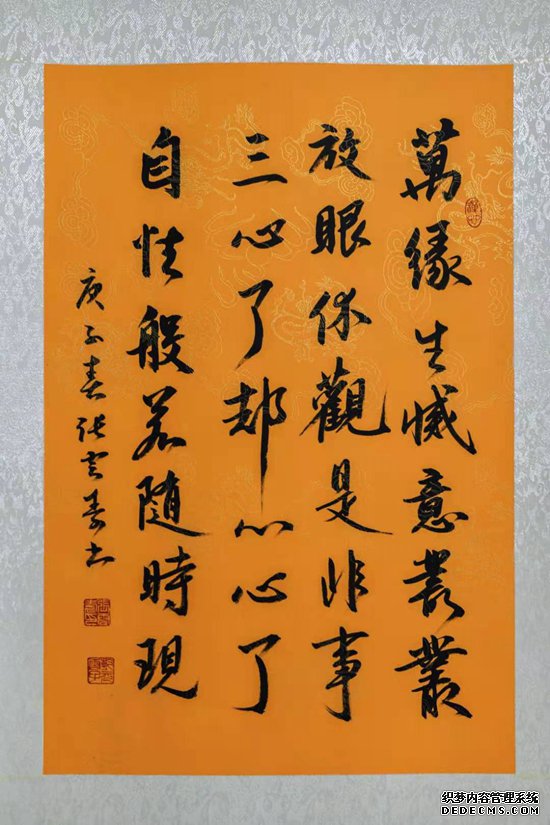 萬緣生滅意叢叢
放眼休觀是非事
三心了却心心了
自性般若随時現
庚子春张云书
织梦内容管理系统
DEDECMS.COM